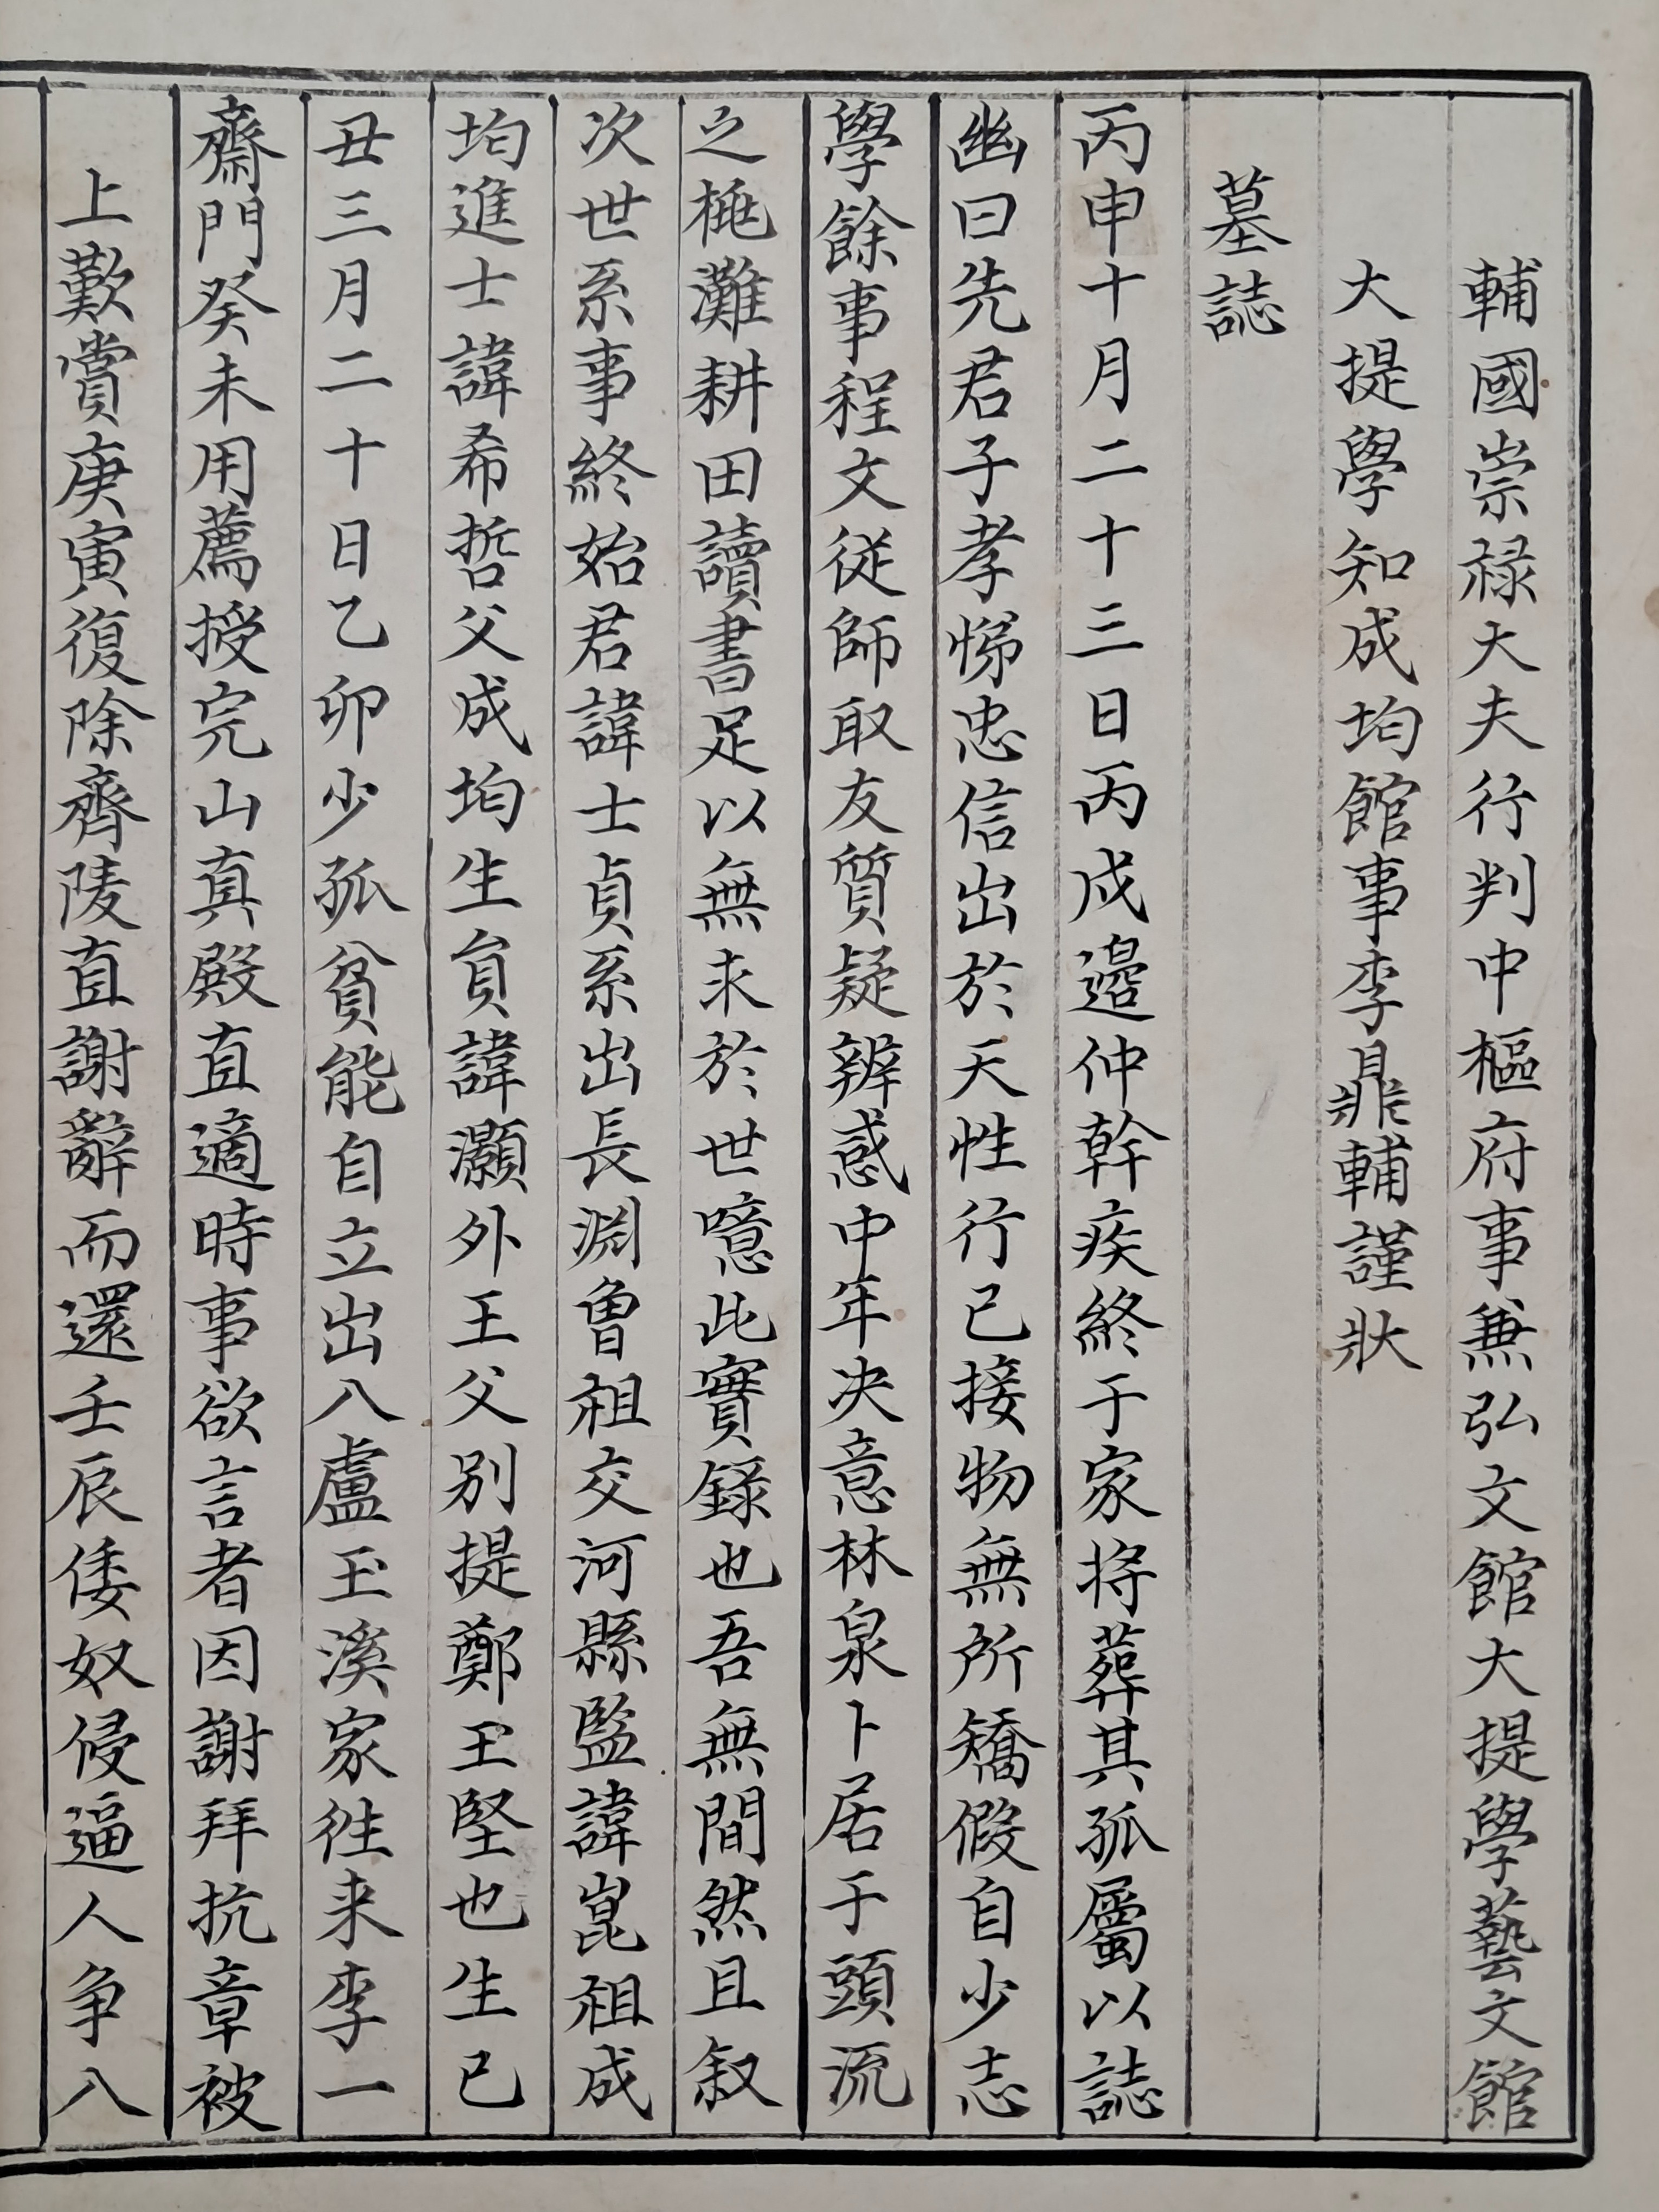 輔國崇祿大夫行判中樞府事兼弘文館大提學藝文館
大提學知成均館事李鼎輔謹狀
墓誌
丙申十月二十三日丙戌邉仲幹疾終于家将葬其孤屬以誌
幽曰先君子孝悌忠信出於天性行已接物無所矯假自少志
學餘事程文従師取友質疑辨惑中年决意林泉卜居于頭流
之桃灘耕田讀書足以無求於世噫此實錄也吾無間然且叙
次世系事終始君諱士貞系出長淵曾祖交河縣監諱崑祖成
均進士諱希哲父成均生貟諱灝外王父別提鄭玉堅也生已
丑三月二十日乙卯少孤貧能自立出入盧玉溪家徃来李一
齋門癸未用薦授完山真殿直適時事欲言者因謝拜抗章被
上歎賞庚寅復除齊陵直謝辭而還壬辰倭奴侵逼人争入